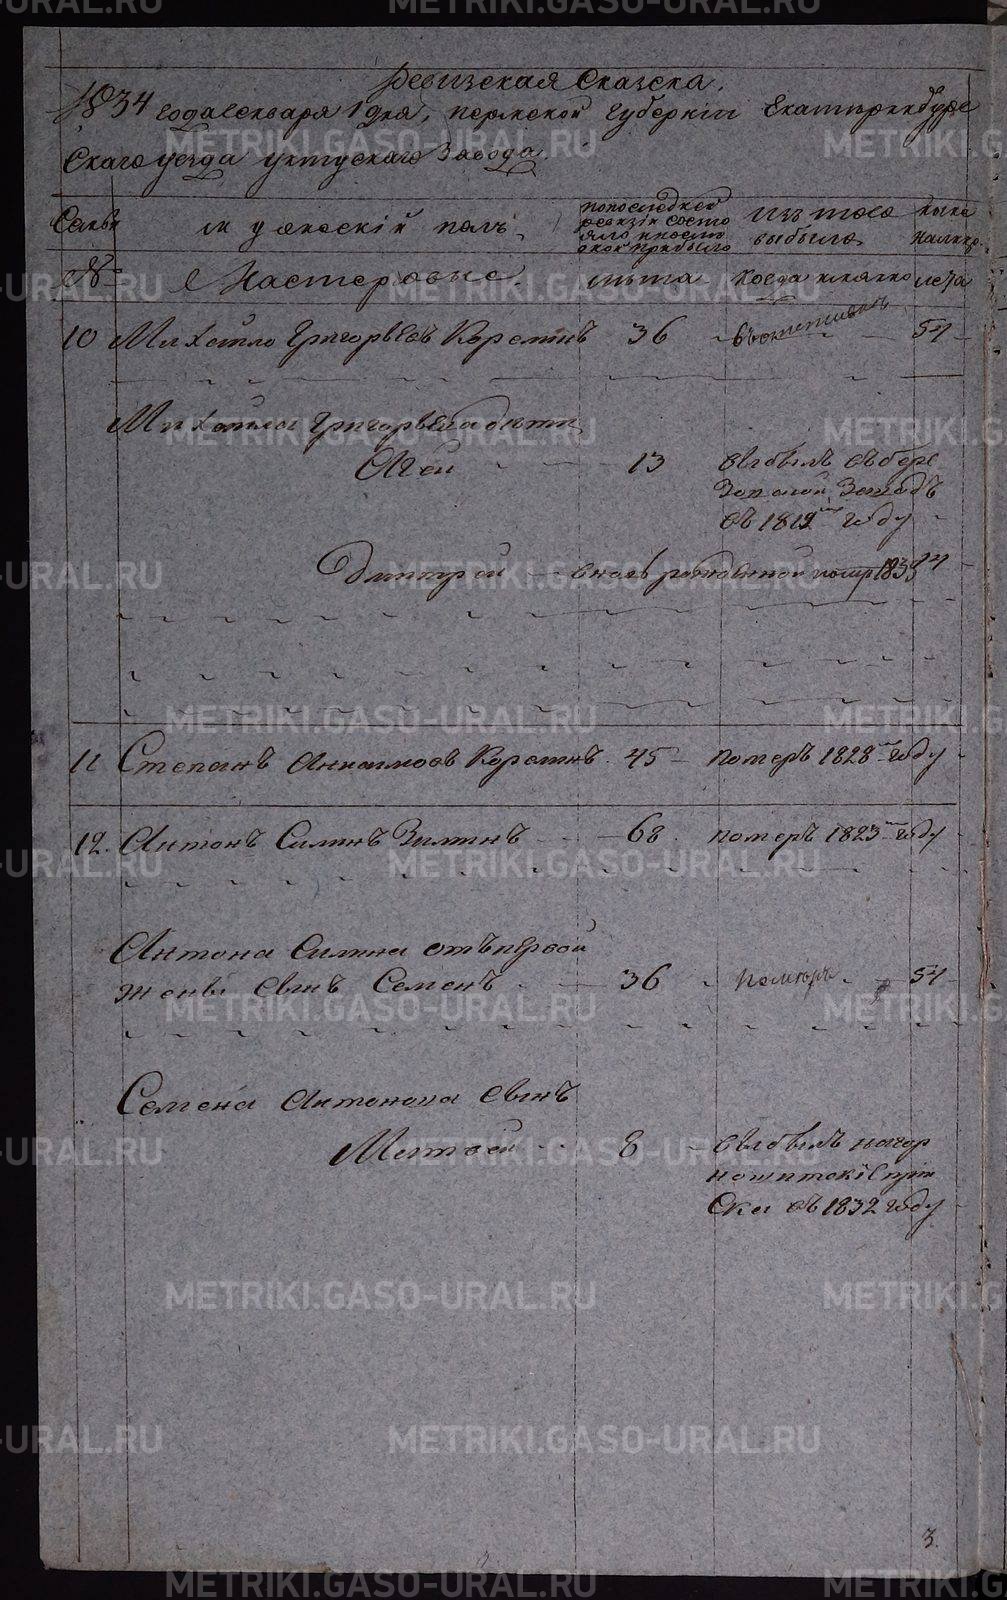 Ревизская Сказска.
1834 года генваря 1 дня, пермской Губернїи Екатеринбург
Скаго уезда уктускаго Завода.
Семьи
мужескїй полъ.
попоследней
ревизїи состо
яло и после
оной прибыло
изъ того
выбыло
ныне
налицо
№
Мастеровые
лета
когда имянно
лета
10 Михайло Григорьевъ Коротинъ 36 54
Михайла Григорьева дети
13 выбылъ въ бере
Зопской Заводъ
въ 1819м году
Дмитрей вновь рожденной 1833 ¾
11 Степанъ Коротинъ 45 померъ 1828м году
12. Антонъ Силинъ Зиминъ 68 померъ 1823м году
Антона Силина отъ первой
жены сынъ Семенъ 36 Померъ 54
Семена Антонова сынъ
Матвей 8 выбылъ нагор
ношитскїе прїи
Ски въ 1832 году
3.
METRIKI.GASO-URAL.RU